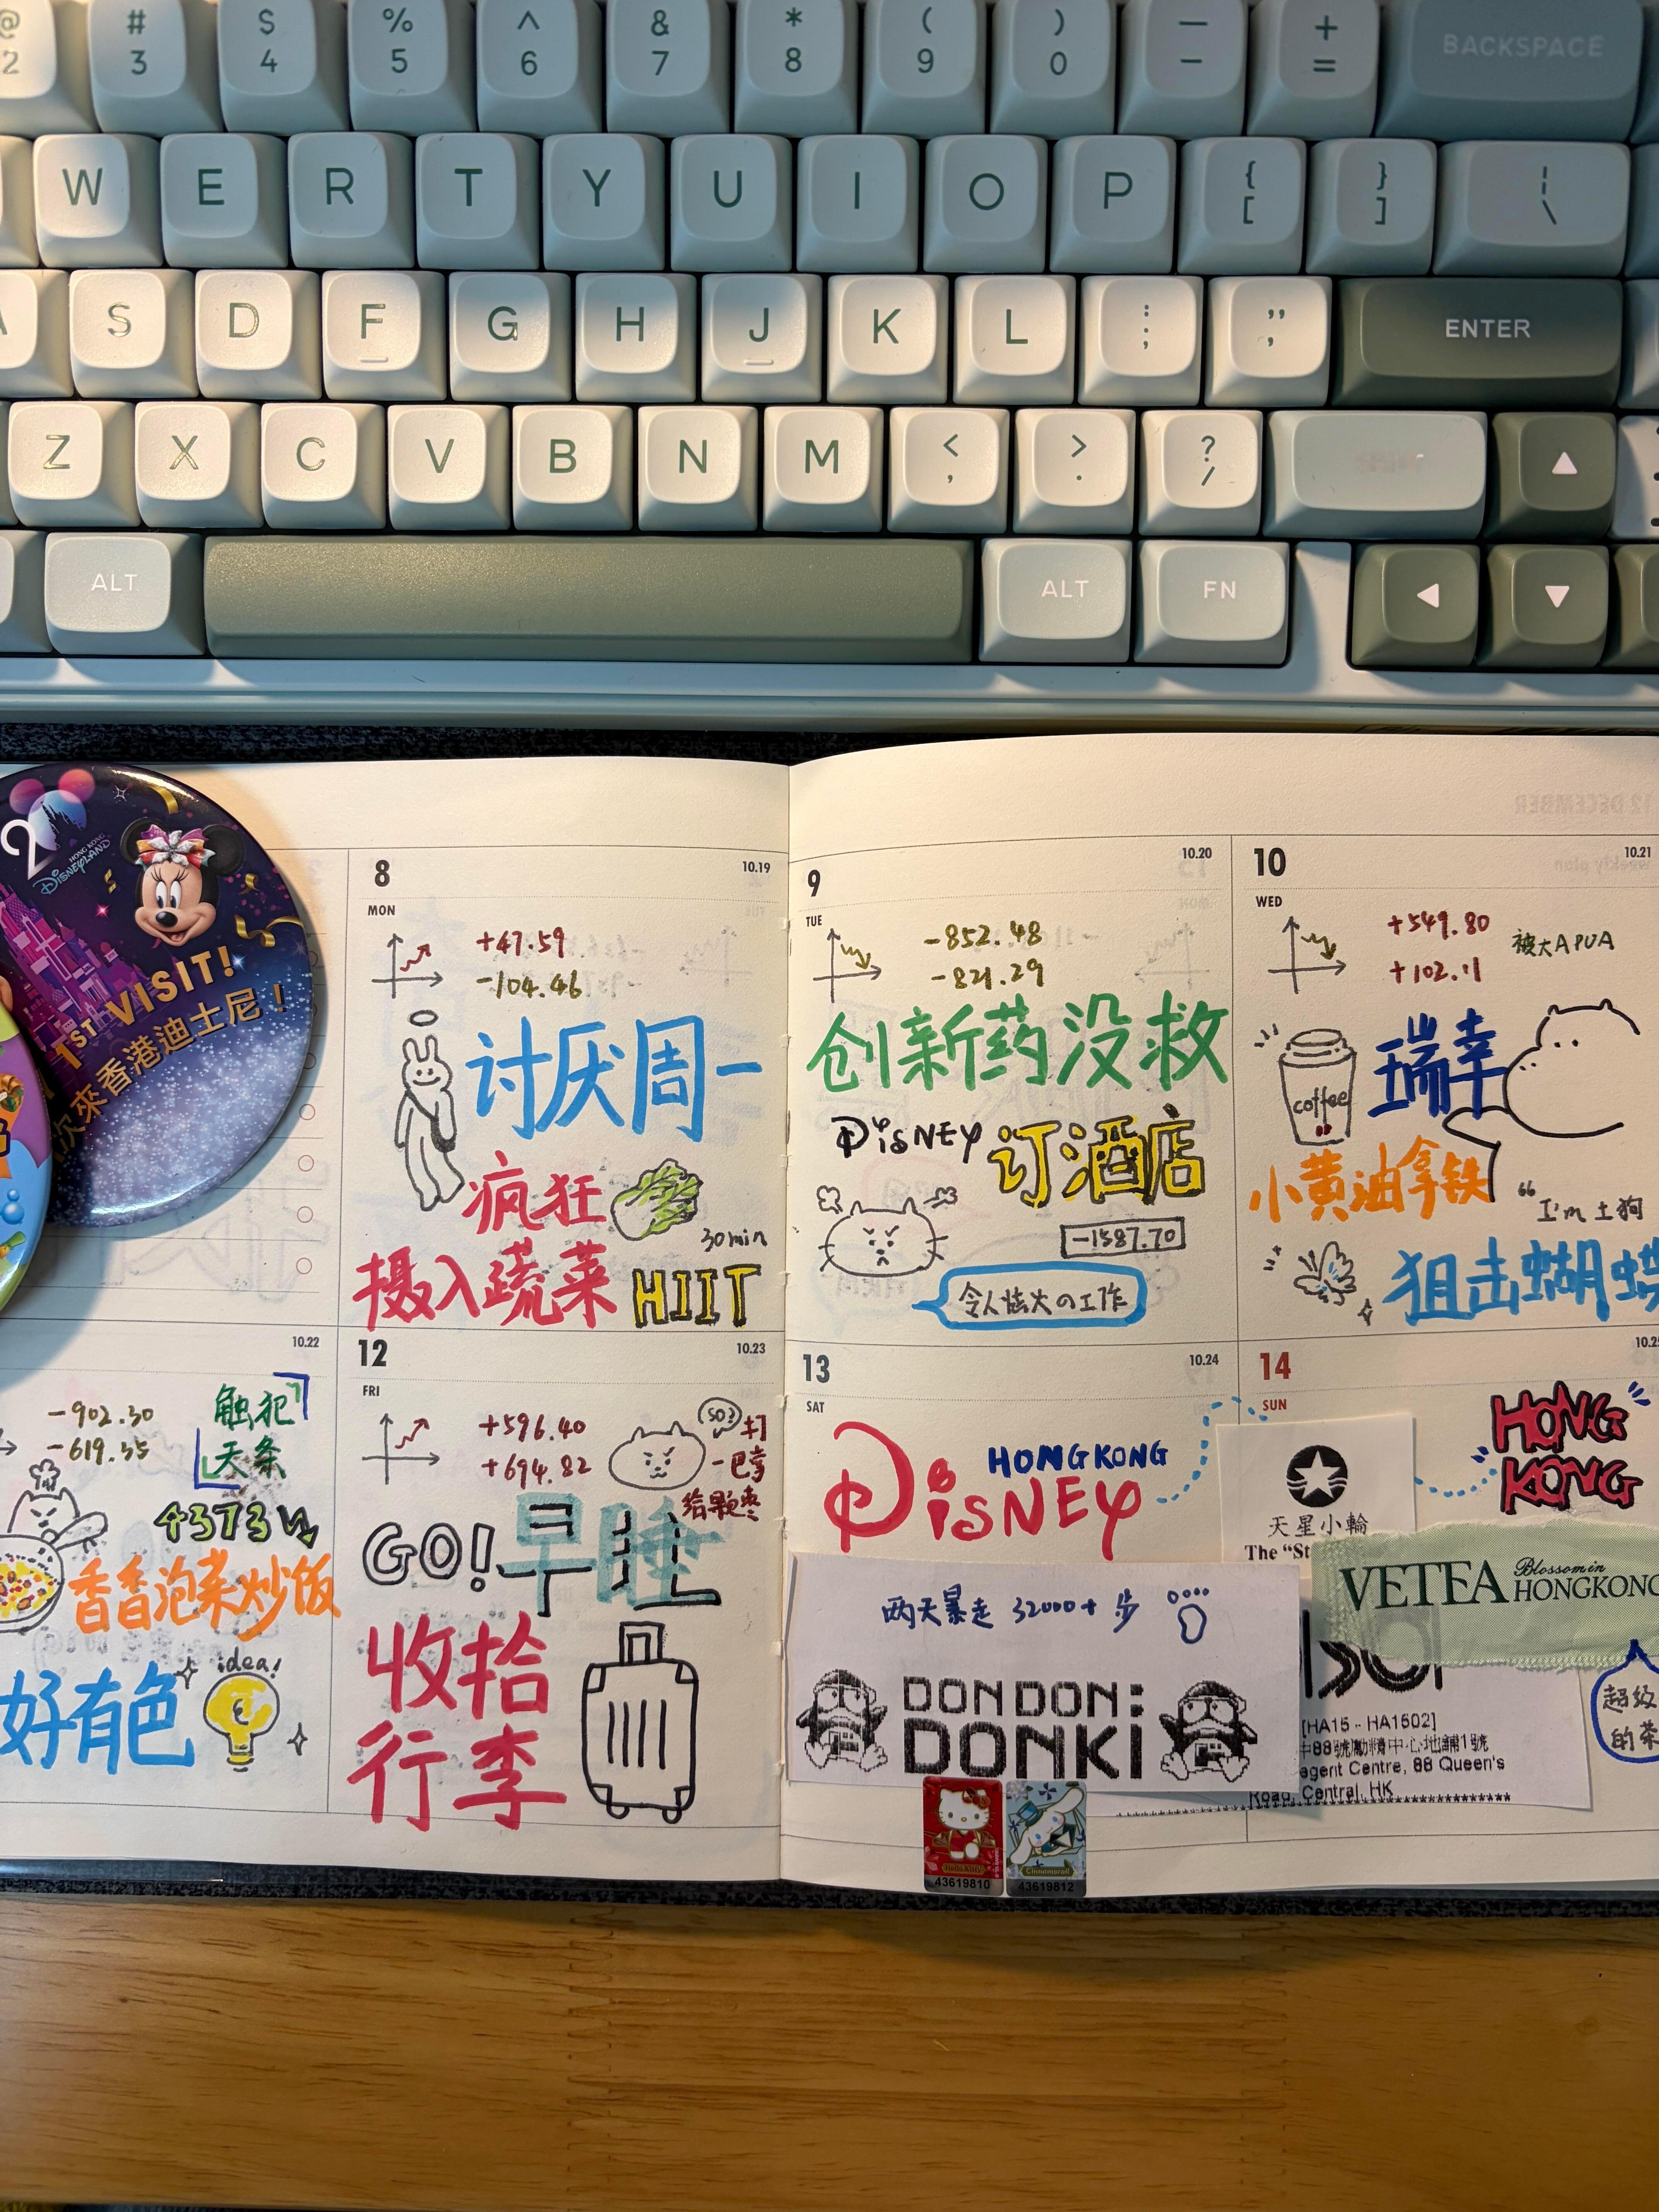 @ # $ % ^ & * ( ) — +
2 3 4 5 6 7 8 9 0 - = BACKSPACE
W E R T Y U I O P { [ } ] ¦ \
S D F G H J K L : ; " , ENTER
Z X C V B N M < , > . ? /
ALT ALT FN
HONG KONG
DISNEYLAND
1ST VISIT!
次來香港迪士尼!
8 10.19
MON
+47.59
-104.46
讨厌周一
疯狂
摄入蔬菜
30min
HIIT
9 10.20
TUE
-852.48
-821.29
创新药没救
DisNEY 订酒店
-1587.70
令人恼火の工作
10 10.21
WED
+549.80
+102.11
被大A PUA
coffee
瑞幸
小黄油拿铁
"I'm 土狗
狙击蝴蝶
10.22
-902.30
-619.35
触犯
天条
4373
香香泡菜炒饭
好有色
idea!
12 10.23
FRI
+596.40
+694.82
SO?
打
一巴掌
给颗枣
GO! 早睡
收拾
行李
13 10.24
SAT
DisNEY
HONGKONG
两天暴走 32000+ 步
DON DON:
DONKI
Hello Kitty
43619810
Cinnamoroll
43619812
14
SUN
HONG
KONG
天星小輪
The "St
VETEA Blossom in
HONGKONG
[HA15 - HA1502]
中心地舖1號
agent Centre, 88 Queen's
Road, Central, HK
超级
的茶